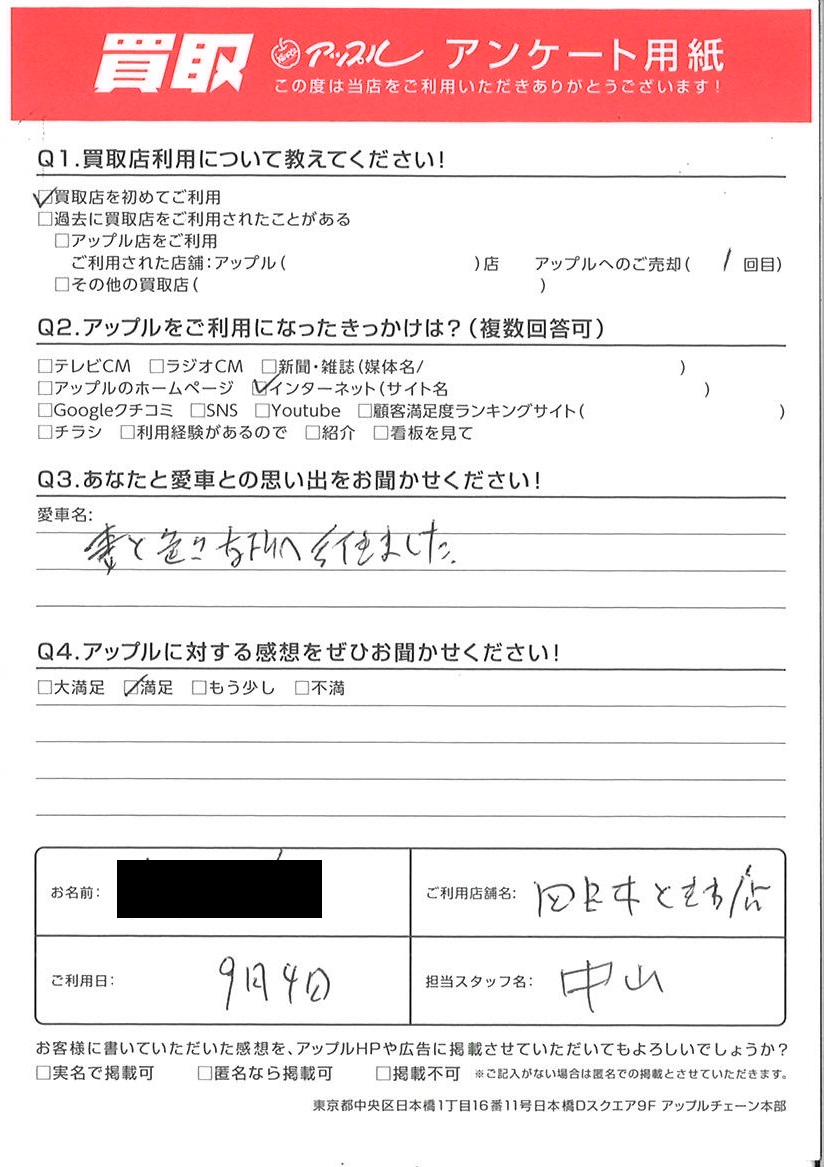 買取 アップル アンケート用紙
この度は当店をご利用いただきありがとうございます!
Q1.買取店利用について教えてください!
☑買取店を初めてご利用
□過去に買取店をご利用されたことがある
□アップル店をご利用
ご利用された店舗:アップル( )店 アップルへのご売却( 1 回目)
□その他の買取店( )
Q2.アップルをご利用になったきっかけは?(複数回答可)
□テレビCM □ラジオCM □新聞・雑誌(媒体名/ )
□アップルのホームページ ☑インターネット(サイト名 )
□Googleクチコミ □SNS □Youtube □顧客満足度ランキングサイト( )
□チラシ □利用経験があるので □紹介 □看板を見て
Q3.あなたと愛車との思い出をお聞かせください!
愛車名:
妻と色々な所へ行きました.
Q4.アップルに対する感想をぜひお聞かせください!
□大満足 ☑満足 □もう少し □不満
お名前:
ご利用店舗名: 店
ご利用日: 9月4日
担当スタッフ名: 中山
お客様に書いていただいた感想を、アップルHPや広告に掲載させていただいてもよろしいでしょうか?
□実名で掲載可 □匿名なら掲載可 □掲載不可 ※ご記入がない場合は匿名での掲載とさせていただきます。
東京都中央区日本橋1丁目16番11号日本橋Dスクエア9F アップルチェーン本部